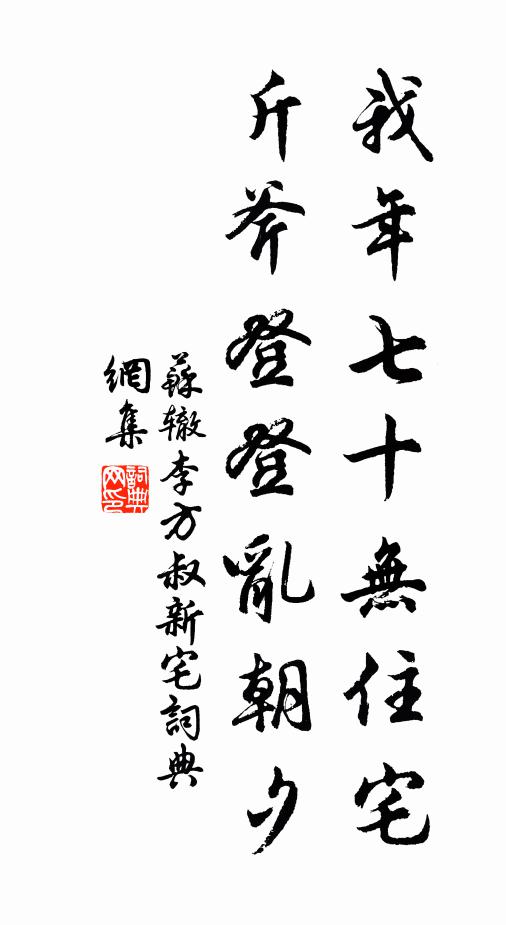 我年七十無住宅
斤斧登登亂朝夕
蘇轍李方叔新宅詞典
網集
詞典网印